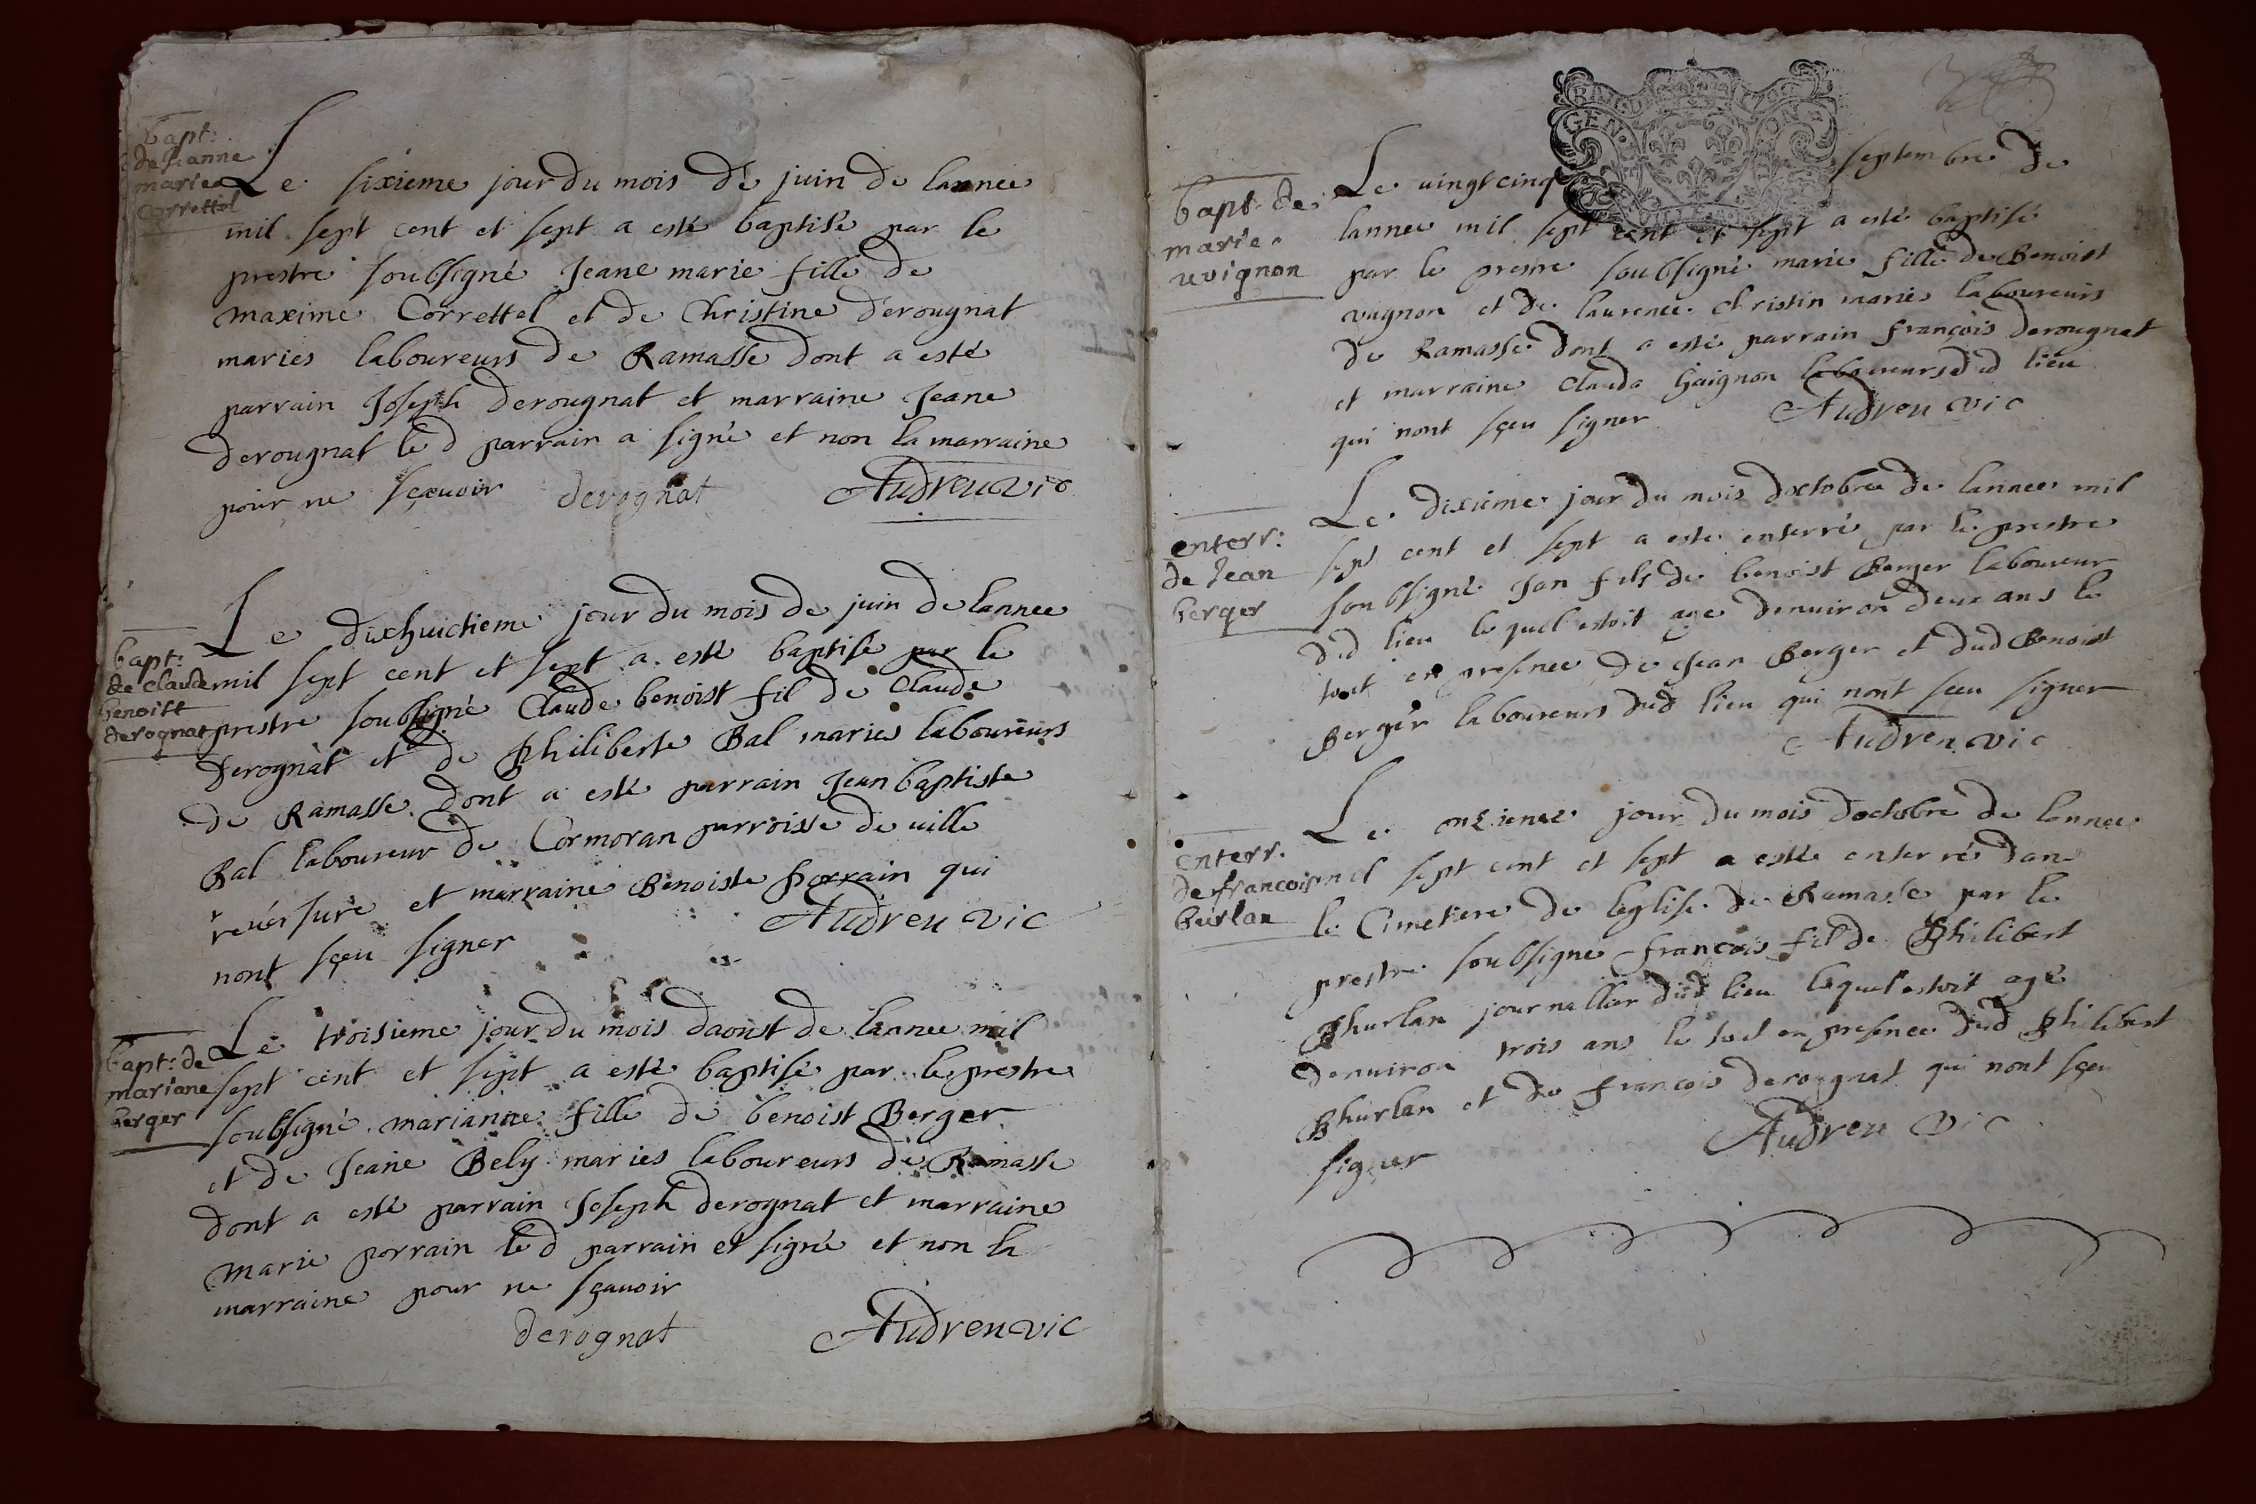 bapt:
de Jeanne
marie
Correttel
Le sixieme jour du mois de juin de lannee
mil sept cent et sept a esté baptisé par le
prestre soubsigné Jeane marie fille de
maxime Correttel et de Christine derougnat
maries laboureurs de Ramasse dont a esté
parrain Joseph derougnat et marraine Jeane
derougnat le d parrain a signé et non la marraine
pour ne sçavoir derognat Audreu vic
bapt:
de claude
benoist
derognat
Le dixhuictieme jour du mois de juin de lannee
mil sept cent et sept a esté baptisé par le
prestre soubsigné Claude benoist fil de claude
derognat et de philiberte Bal maries laboureurs
de Ramasse dont a esté parrain Jean baptiste
Bal laboureur de Cormoran parroisse de ville
reversure et marraine Benoiste porrain qui
nont sçeu signer Audreu vic
bapt: de
mariane
berger
Le troisieme jour du mois daoust de lannee mil
sept cent et sept a esté baptisé par le prestre
soubsigné marianne fille de benoist Berger
et de Jeane Bely maries laboureurs de Ramasse
dont a esté parrain Joseph derognat et marraine
marie porrain le d parrain et signé et non la
marraine pour ne sçavoir
derognat Audreu vic
GEN
bapt de
marie
uvignon
Le vingt cinq septembre de
lannee mil sept cent et sept a esté baptisé
par le prestre soubsigné marie fille de Benoist
vugnon et de laurence christin maries laboureurs
de Ramasse dont a esté parrain françois derougnat
et marraine Clauda laboureurs dud lieu
qui nont sçeu signer Audreu vic
enterr:
de Jean
berger
Le dixieme jour du mois doctobre de lannee mil
sept cent et sept a esté enterré par le prestre
soubsigné Jan fils de benoist Berger laboureur
dud lieu lequel estoit age denuiron deux ans le
tout en presence de Jean Berger et dud Benoist
Berger laboureurs dud lieu qui nont sçeu signer
Audreu vic
enterr.
de francois
burlan
Le onzieme jour du mois doctobre de lannee
mil sept cent et sept a esté enterré dans
le Cimetiere de leglise de Ramasse par le
prestre soubsigné francois fil de Philibert
Bhurlan journallier dud lieu lequel estoit agé
denuiron trois ans le tout en presence dud Philibert
Bhurlan et de francois derougnat qui nont sçeu
signer Audreu vic